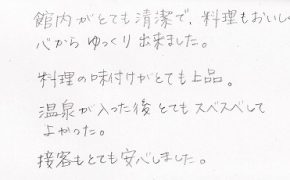 館内がとても清潔で、料理もおいし
心からゆっくり出来ました。
料理の味付けがとても上品。
温泉が入った後とてもスベスベして
よかった。
接客もとても安心しました。